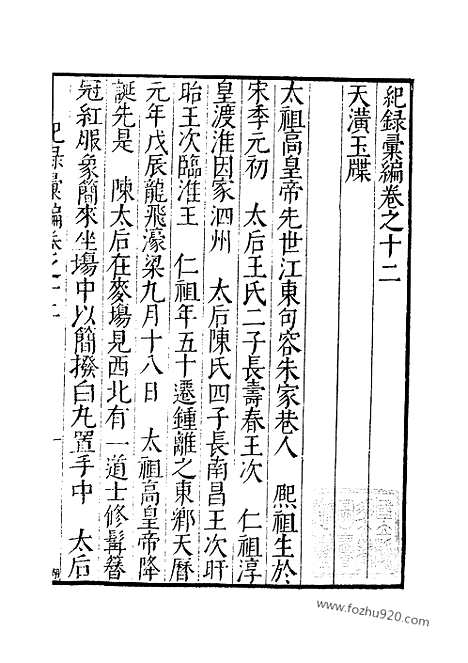 紀録彙編卷之十二
天潢玉牒
太祖高皇帝先世江東句容朱家巷人 熈祖生於
宋季元初 太后王氏二子長壽春王次 仁祖淳
皇渡淮因家泗州 太后陳氏四子長南昌王次盱
眙王次臨淮王 仁祖年五十遷鍾離之東鄉天曆
元年戊辰龍飛濠梁九月十八日 太祖高皇帝降
誕先是 陳太后在麥場見西北有一道士修髯簪
冠紅服象簡來坐場中以簡撥白丸置手中 太后
紀録彙編卷之十二
一
www.fozhu920.com